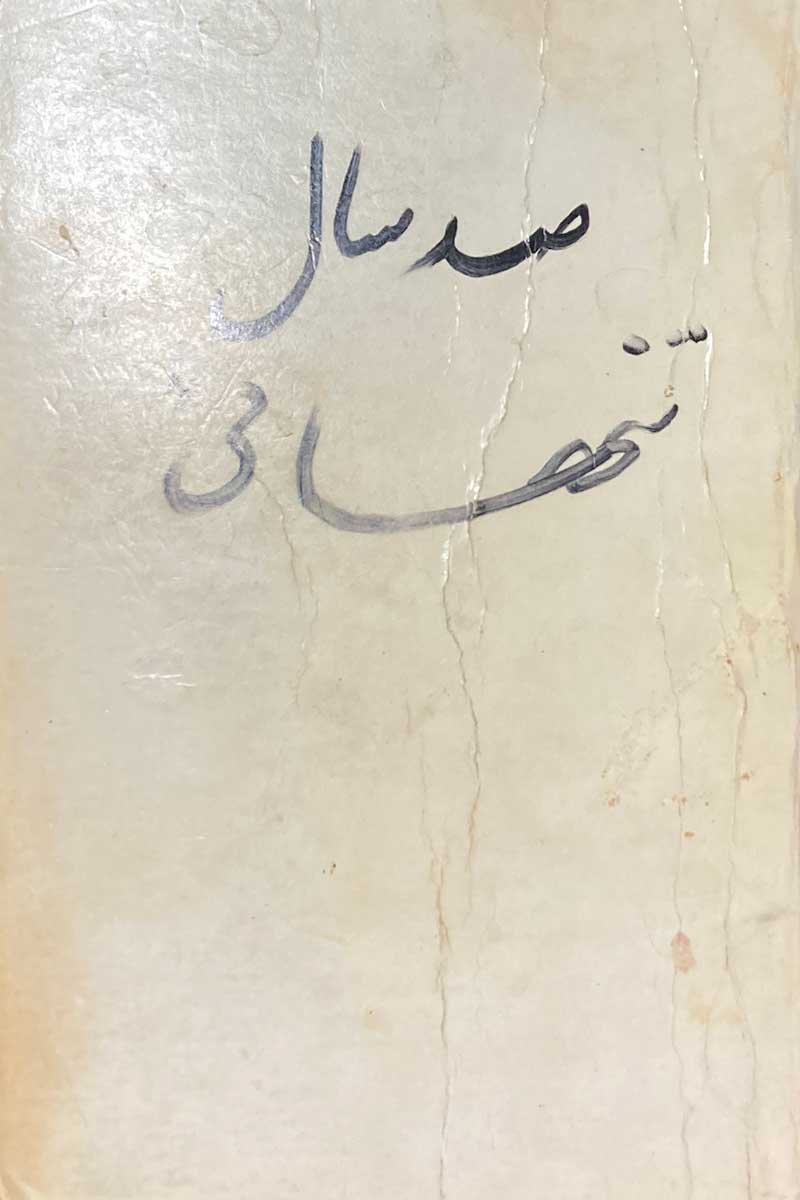 صد سال
تنهائی